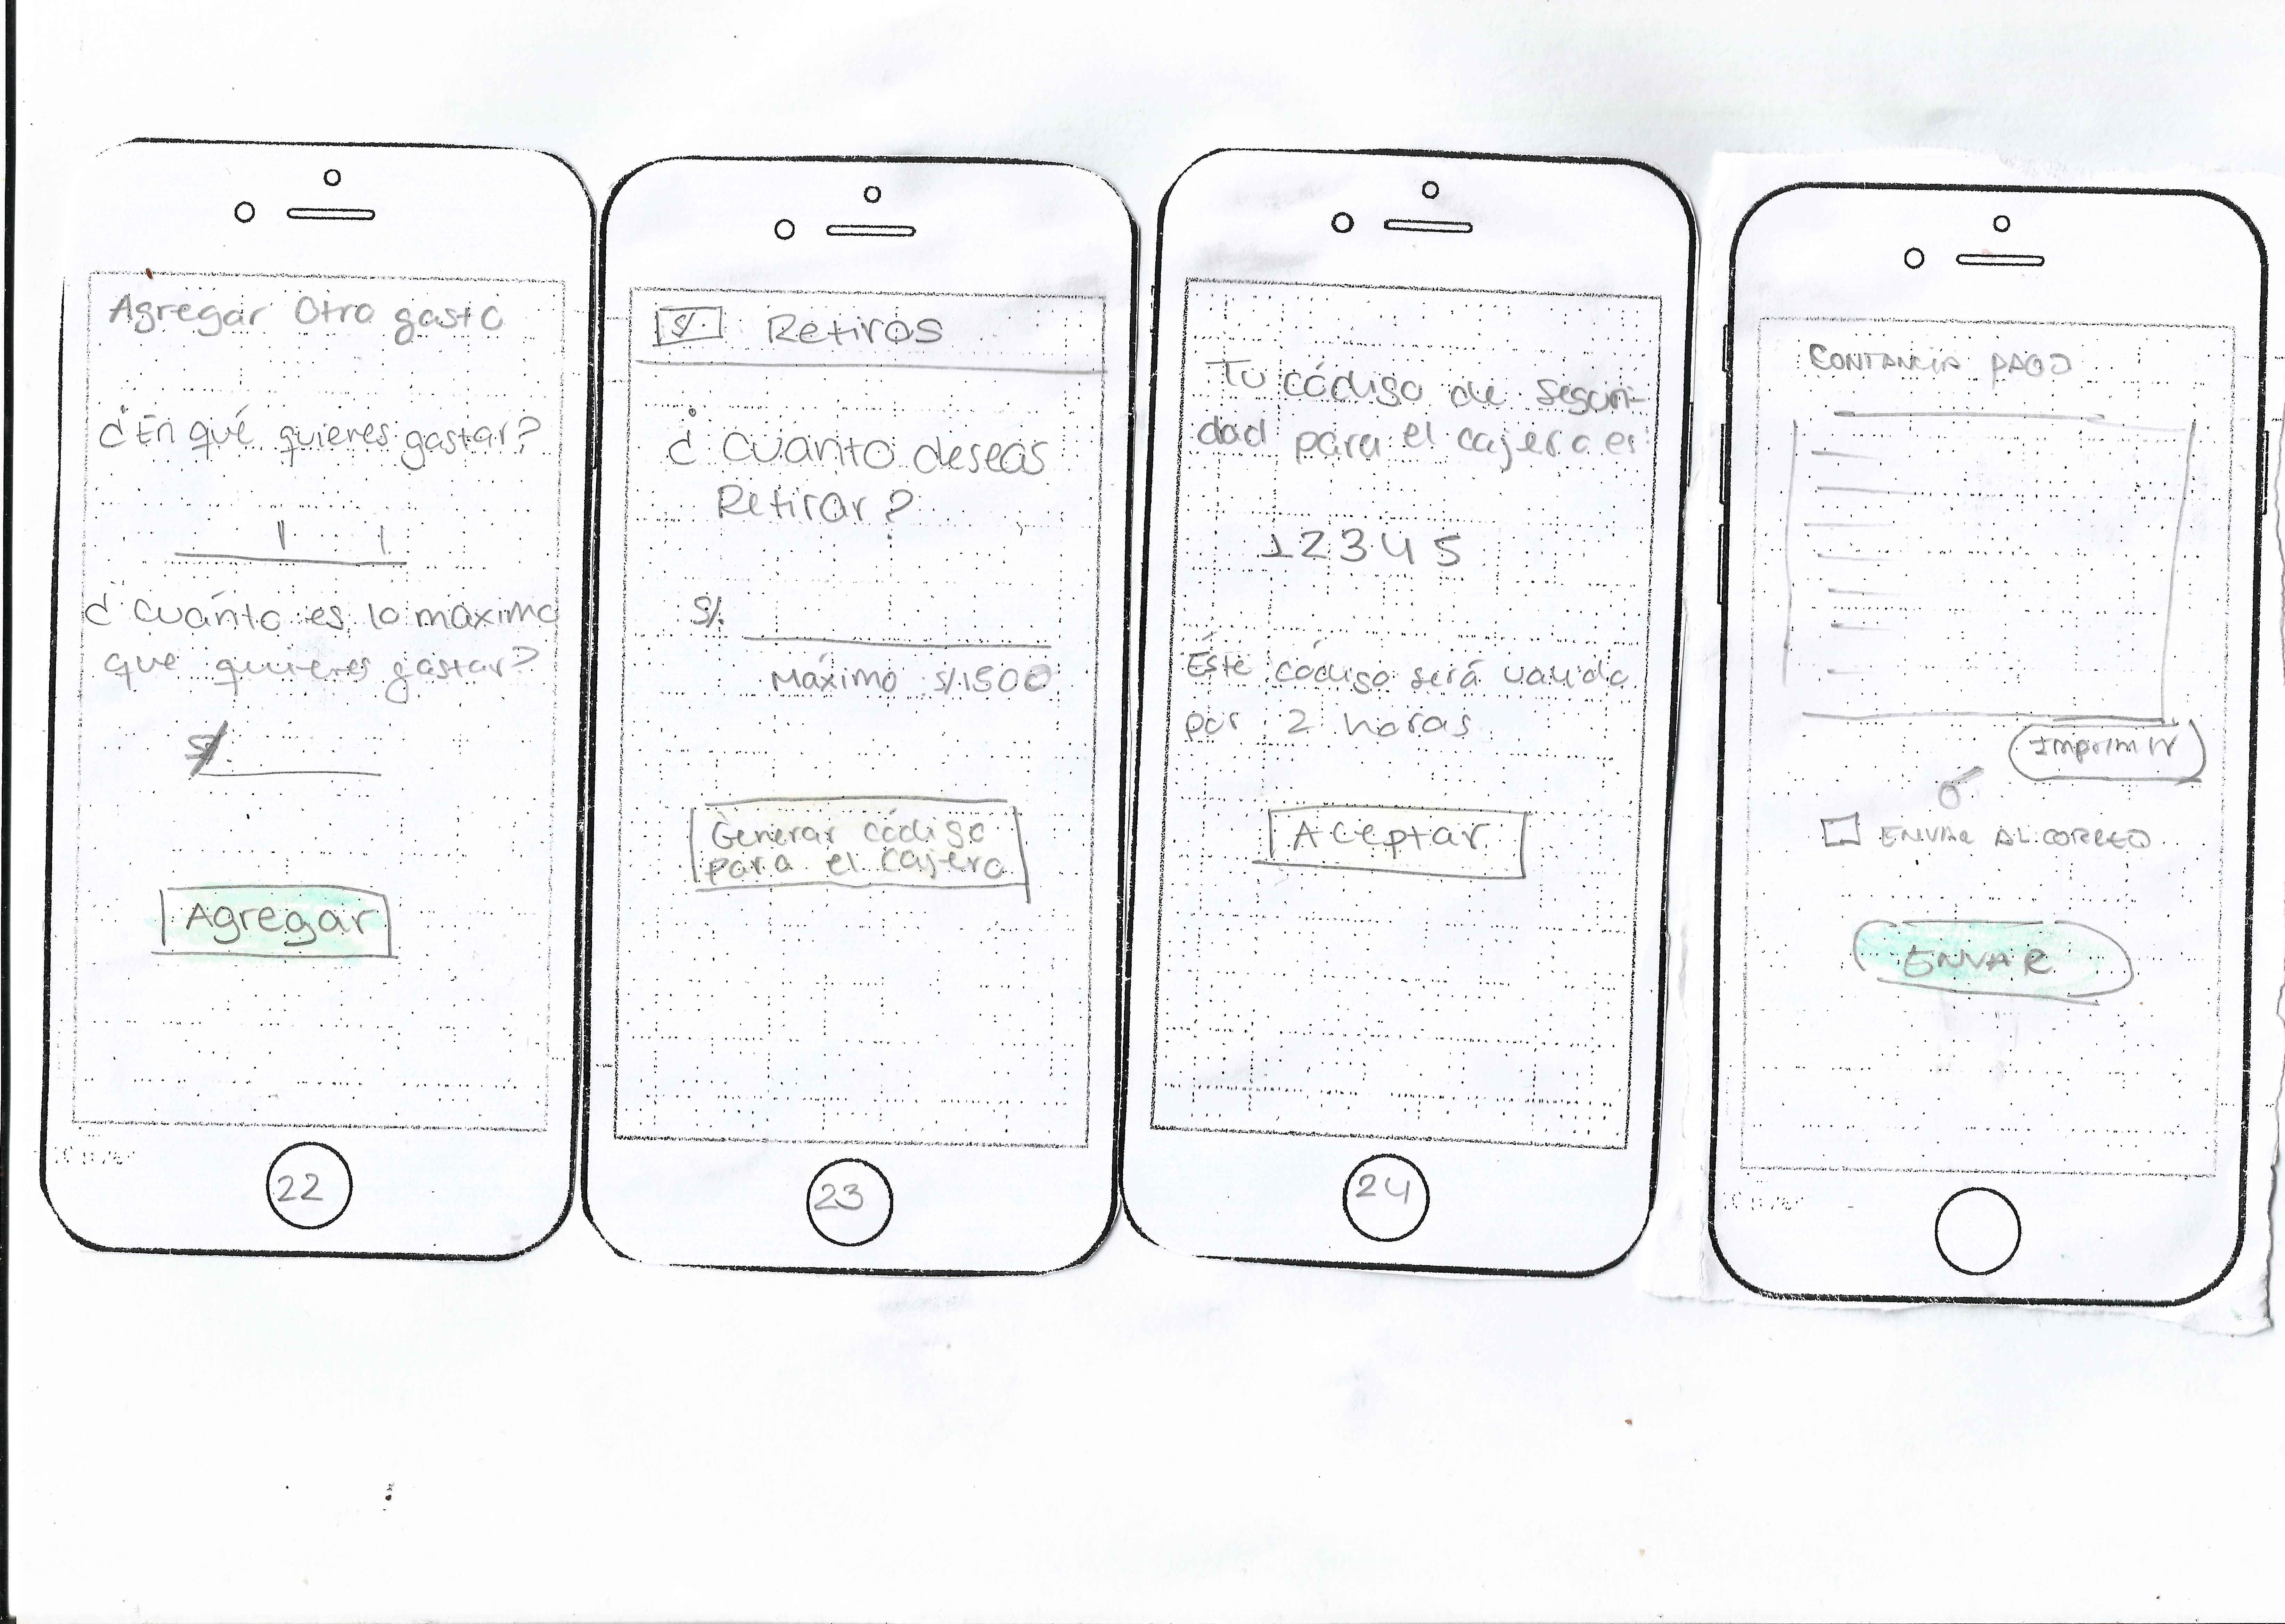 Agregar Otro gasto
¿En qué quieres gastar?
¿Cuánto es lo máximo
que quieres gastar?
S/.
Agregar
22
S/. Retiros
¿Cuánto deseas
Retirar?
S/.
Máximo S/.1500
Generar código
para el cajero
23
Tu código de seguri-
dad para el cajero es:
12345
Este código será valido
por 2 horas.
Aceptar
24
CONTANCIA PAGO
Imprimir
ó
ENVIAR AL CORREO
ENVIAR